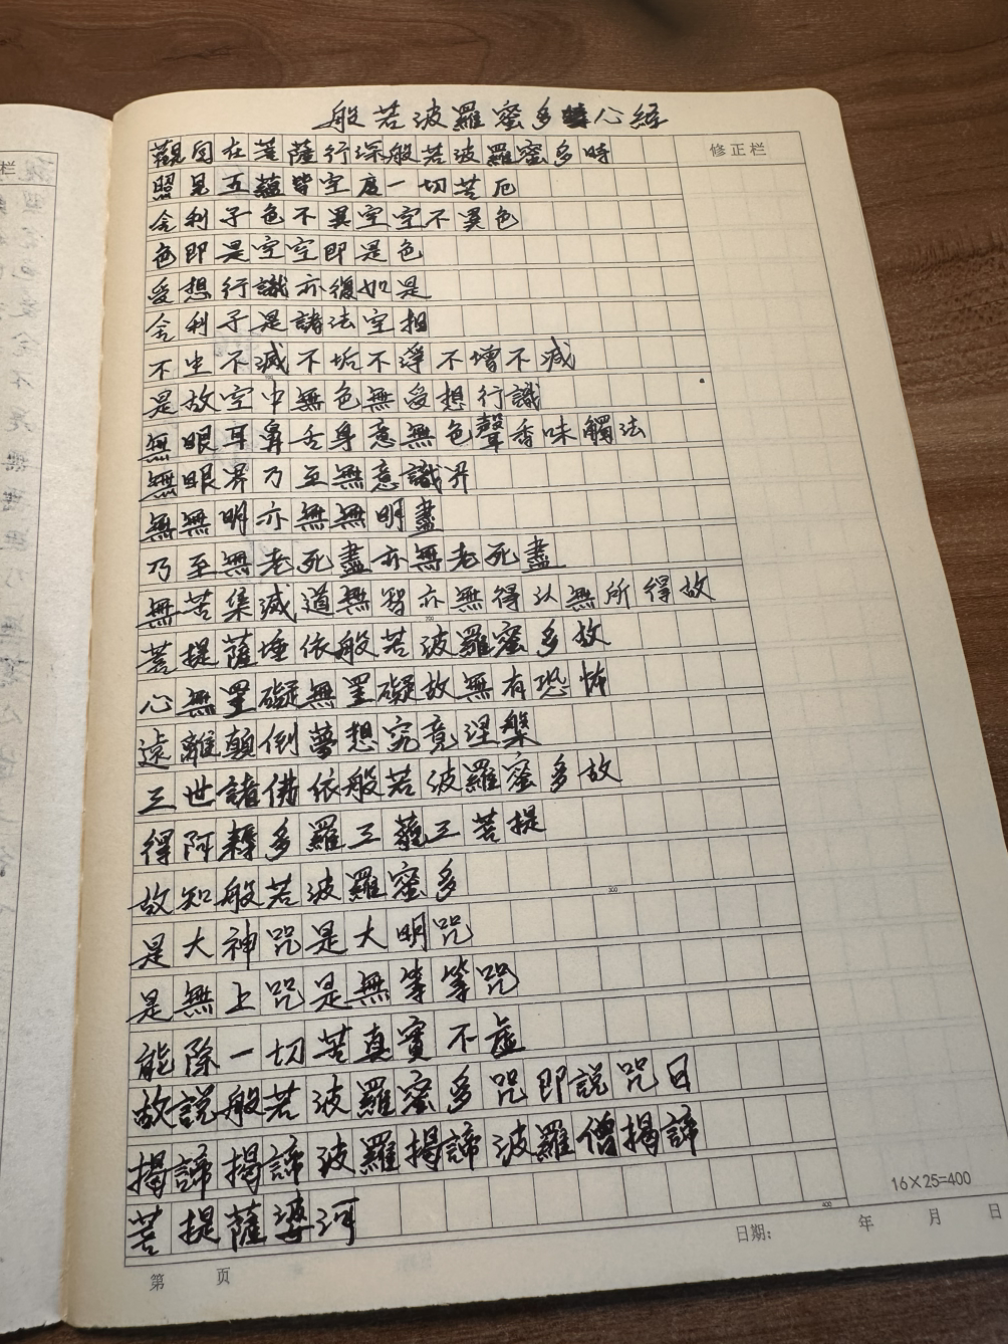 般若波羅蜜多心經
觀自在菩薩行深般若波羅蜜多時
修正栏
照見五蘊皆空度一切苦厄
舍利子色不異空空不異色
色即是空空即是色
受想行識亦復如是
舍利子是諸法空相
不生不滅不垢不淨不增不減
是故空中無色無受想行識
無眼耳鼻舌身意無色聲香味觸法
無眼界乃至無意識界
無無明亦無無明盡
乃至無老死盡亦無老死盡
無苦集滅道無智亦無得以無所得故
菩提薩埵依般若波羅蜜多故
心無罣礙無罣礙故無有恐怖
遠離顛倒夢想究竟涅槃
三世諸佛依般若波羅蜜多故
得阿耨多羅三藐三菩提
故知般若波羅蜜多
是大神咒是大明咒
是無上咒是無等等咒
能除一切苦真實不虛
故說般若波羅蜜多咒即說咒曰
揭諦揭諦波羅揭諦波羅僧揭諦
菩提薩婆訶
16×25=400
日期： 年 月 日
第 页